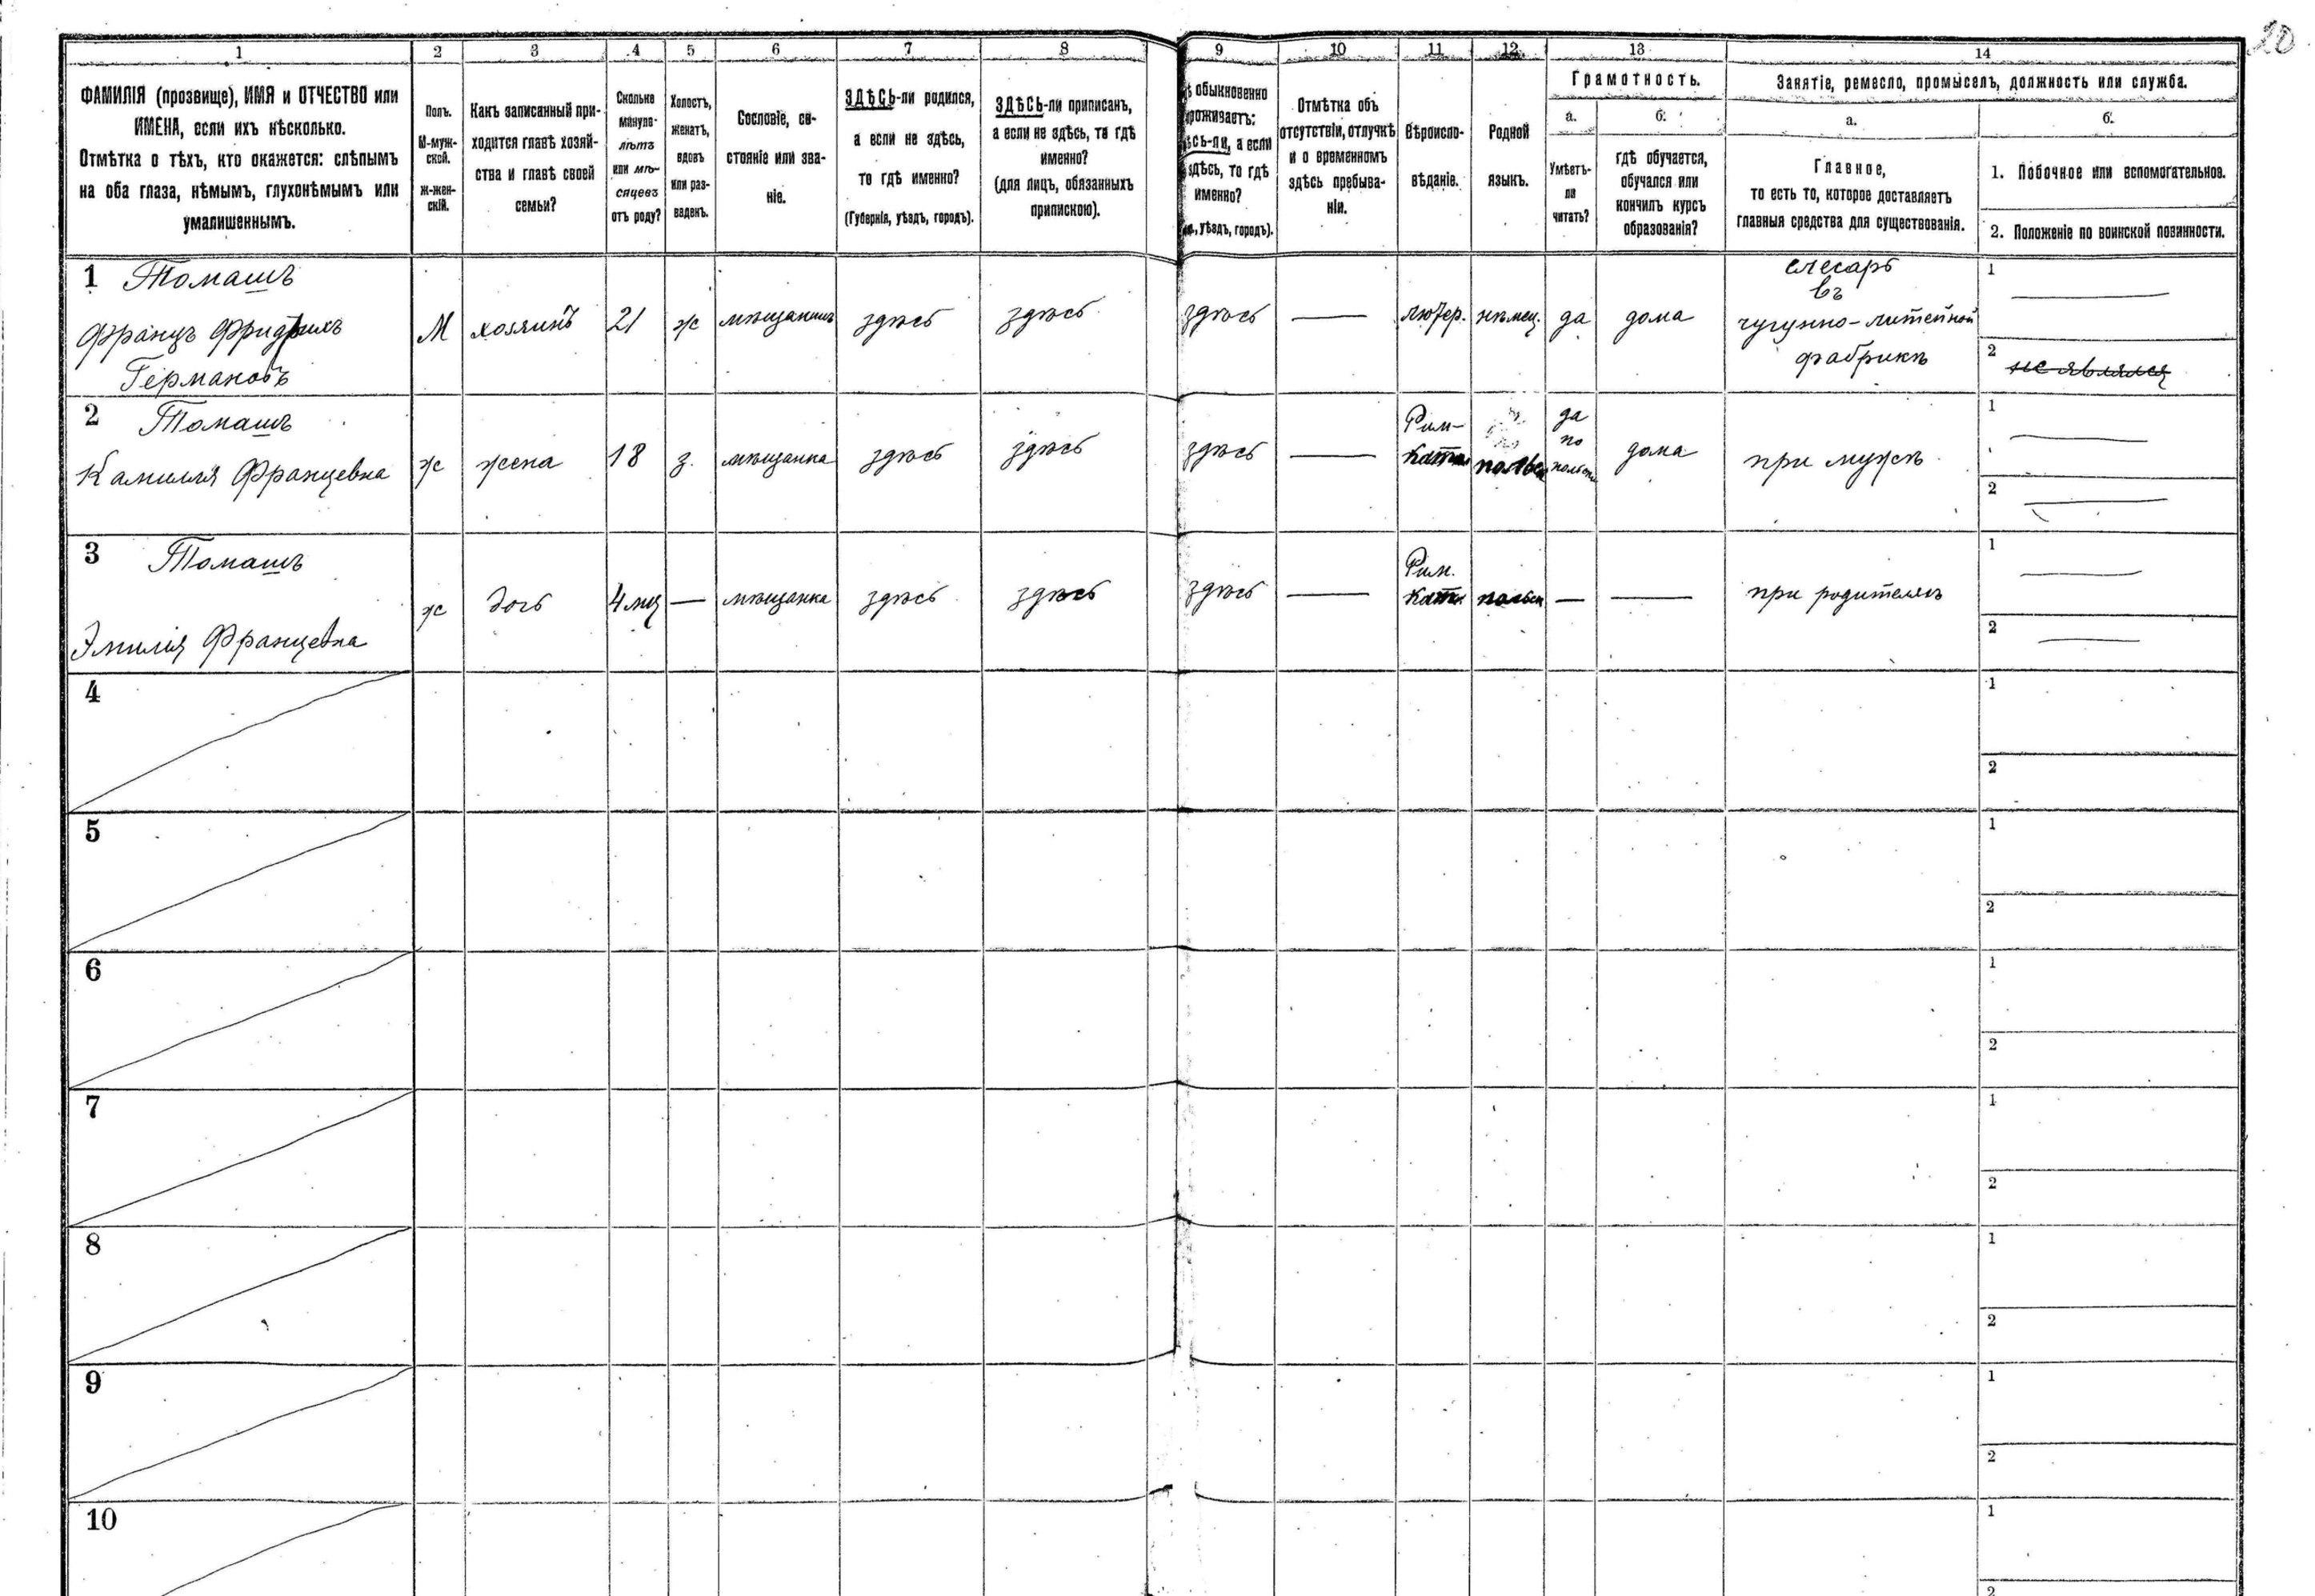 20
1 2 3 4 5 6 7 8 9 10 11 12 13 14
ФАМИЛІЯ (прозвище), ИМЯ и ОТЧЕСТВО или
ИМЕНА, если ихъ нѣсколько.
Отмѣтка о тѣхъ, кто окажется: слѣпымъ
на оба глаза, нѣмымъ, глухонѣмымъ или
умалишеннымъ.
Полъ.
М-муж-
ской.
ж-жен-
скій.
Какъ записанный при-
ходится главѣ хозяй-
ства и главѣ своей
семьи?
Сколько
минуло
лѣтъ
или мѣ-
сяцевъ
отъ роду?
Холостъ,
женатъ,
вдовъ
или раз-
веденъ.
Сословіе, со-
стояніе или зва-
ніе.
ЗДѢСЬ-ли родился,
а если не здѣсь,
то гдѣ именно?
(Губернія, уѣздъ, городъ).
ЗДѢСЬ-ли приписанъ,
а если не здѣсь, то гдѣ
именно?
(для лицъ, обязанныхъ
припискою).
обыкновенно
роживаетъ:
сь-ли, а если
здѣсь, то гдѣ
именно?
уѣздъ, городъ).
Отмѣтка объ
отсутствіи, отлучкѣ
и о временномъ
здѣсь пребыва-
ніи.
Вѣроиспо-
вѣданіе.
Родной
языкъ.
Грамотность.
а.
Умѣетъ-
ли
читать?
б.
гдѣ обучается,
обучался или
кончилъ курсъ
образованія?
Занятіе, ремесло, промыселъ, должность или служба.
а.
Главное,
то есть то, которое доставляетъ
главныя средства для существованія.
б.
1. Побочное или вспомогательное.
2. Положеніе по воинской повинности.
1 Томашъ
Францъ Фридрихъ
Германовъ
М
хозяинъ
21
ж
мѣщанинъ
здѣсь
здѣсь
здѣсь
—
лютер.
нѣмец.
да
дома
слесарь
въ
чугунно-литейной
фабрикѣ
1 —
2 не явился
2 Томашъ
Камилля Францевна
ж
жена
18
з.
мѣщанка
здѣсь
здѣсь
здѣсь
—
Рим-
Катол
польск
да
по
польск
дома
при мужѣ
1 —
2 —
3 Томашъ
Эмилія Францевна
ж
дочь
4 мц
—
мѣщанка
здѣсь
здѣсь
здѣсь
—
Рим.
Катол
польск
—
—
при родителяхъ
1 —
2 —
4
1
2
5
1
2
6
1
2
7
1
2
8
1
2
9
1
2
10
1
2